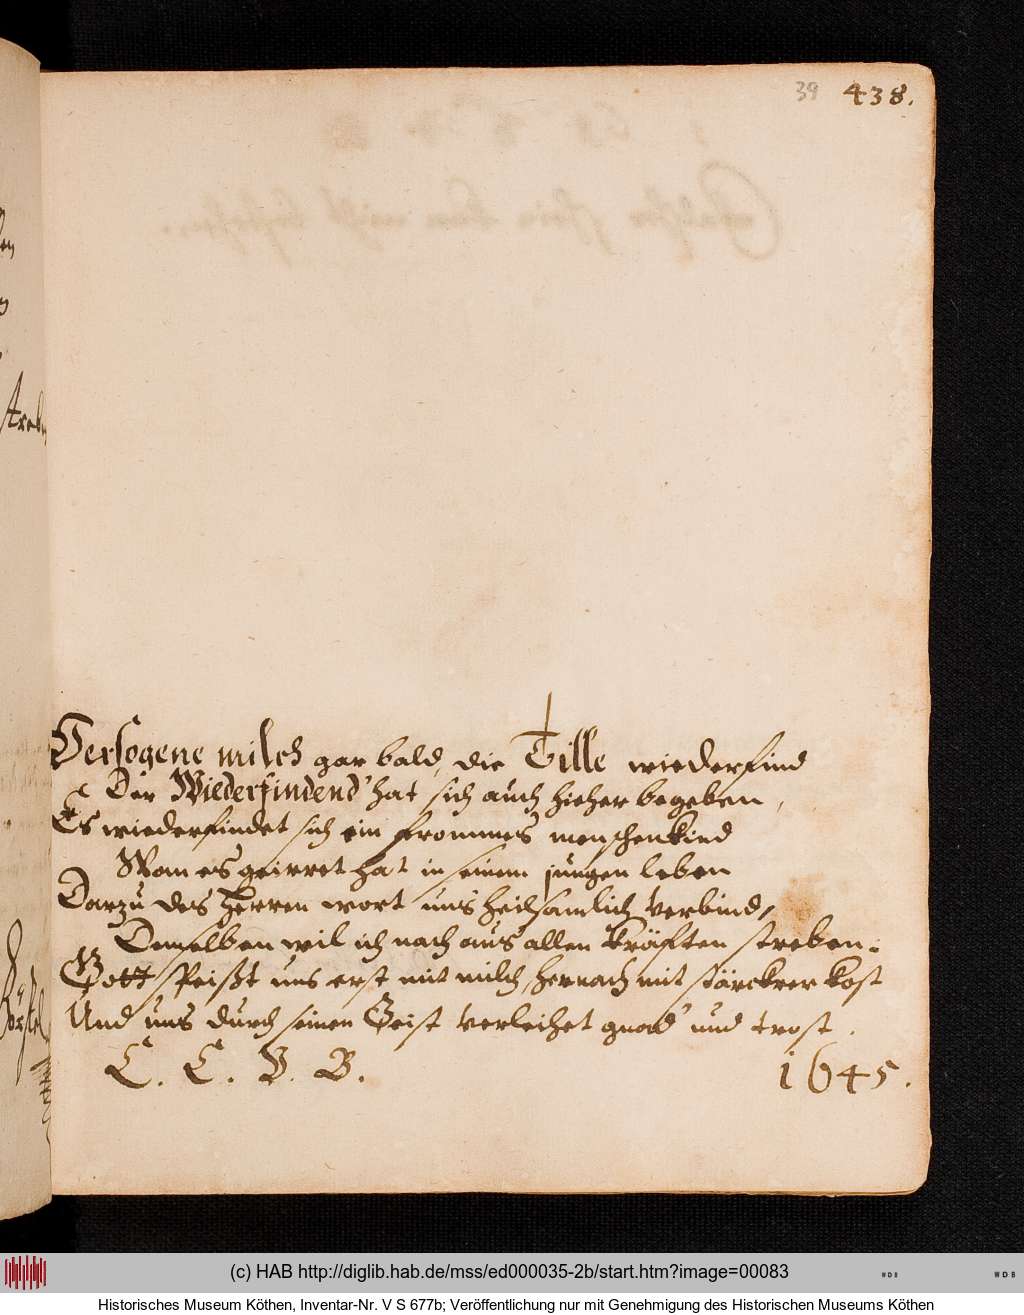 39 438.
Versogene milch gar bald, die Tille wiederfind
Der Wiederfindend' hat sich auch hieher begeben,
Es wiederfindet sich ein frommes menschenkind
Wan es geirret hat in seinem jungen leben
Darzu des Herren wort uns heilsamlich verbind,
Demselben wil ich nach aus allen kräfften streben:
Gott speißt uns erst mit milch, hernach mit stärckrer kost
Und uns durch seinen Geist verleihet gnad' und trost.
C. C. V. B.
1645.
(c) HAB http://diglib.hab.de/mss/ed000035-2b/start.htm?image=00083
Historisches Museum Köthen, Inventar-Nr. V S 677b; Veröffentlichung nur mit Genehmigung des Historischen Museums Köthen